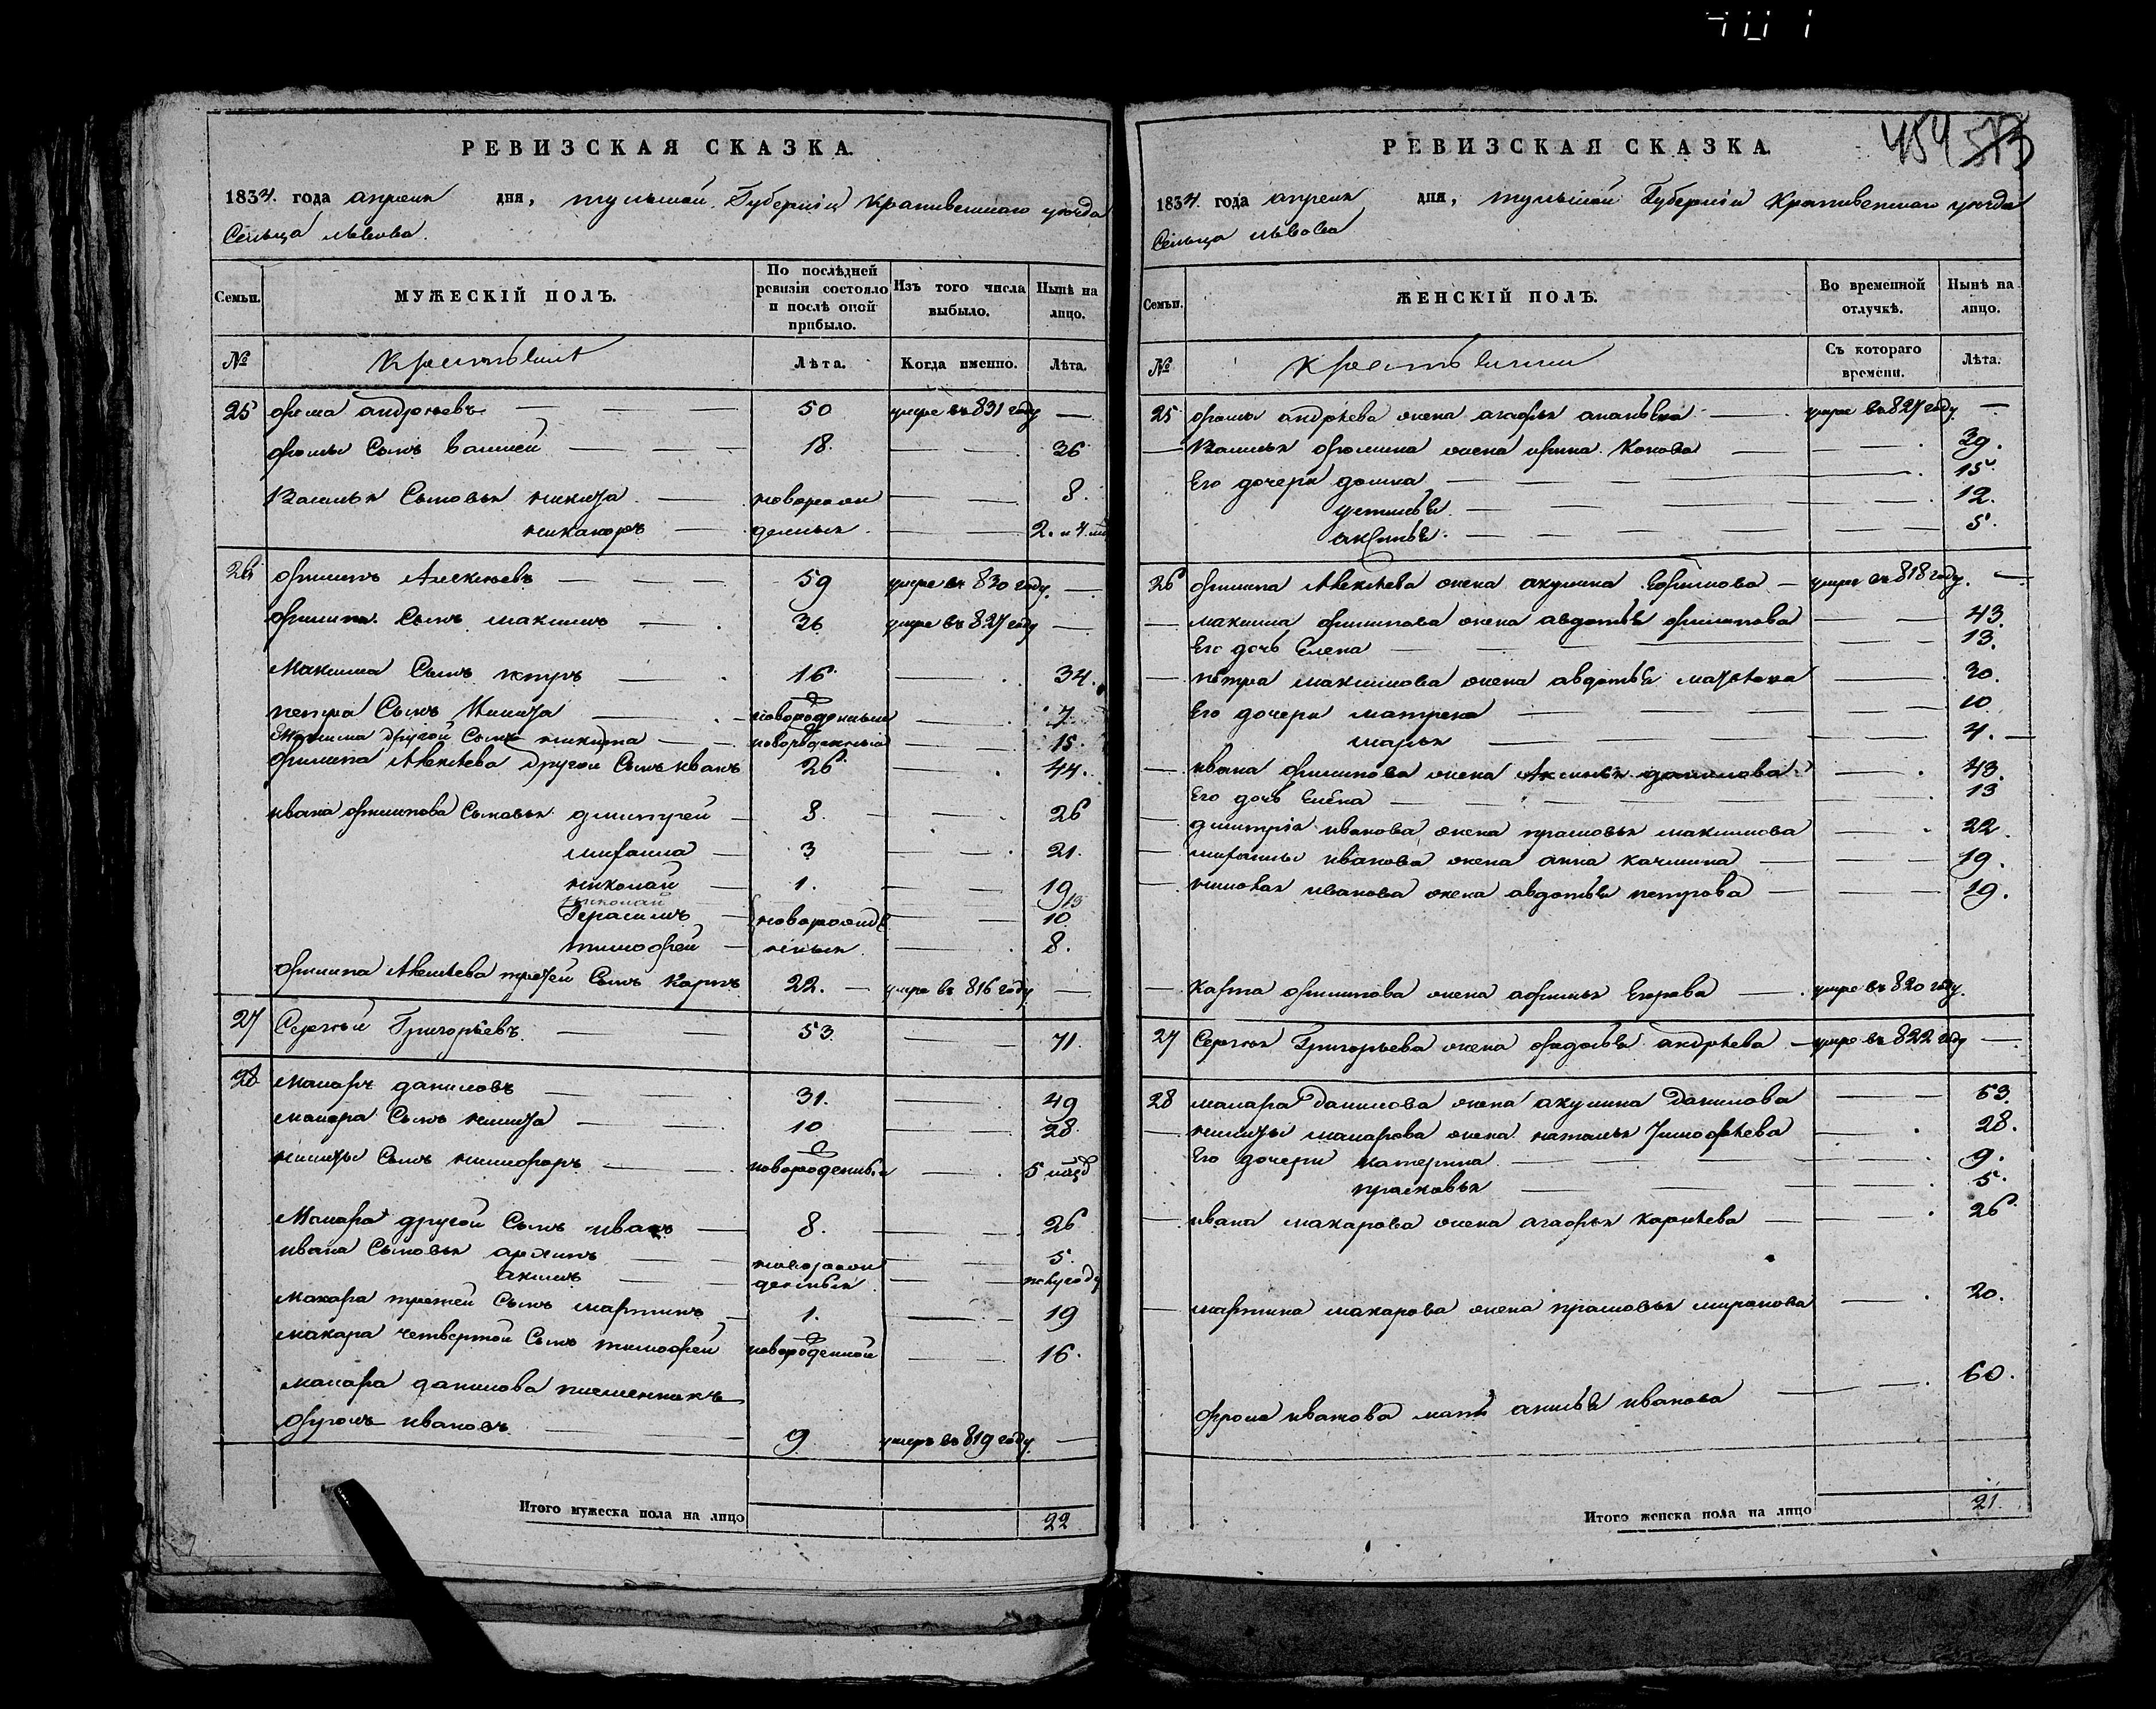 РЕВИЗСКАЯ СКАЗКА.
1834. года апреля дня, тульской Губернiи Крапивенскаго уезда
Сельца львова.
Семьи.
МУЖЕСКIЙ ПОЛЪ.
По послѣдней ревизiи состояло и послѣ оной прибыло.
Изъ того числа выбыло.
Нынѣ на лицо.
№
Крестьяне
Лѣта.
Когда именно.
Лѣта.
25 фома андреевъ 50 умре въ 831 году
фомы Сынъ василей 18. 36
Василья Сыновья никита новорож 8.
никаноръ денныя 2. и 4. мѣ
26 филипъ Алексѣевъ 59 умре въ 830 году
филипа Сынъ максимъ 36 умре въ 827 году
Максима Сынъ петръ 16 34.
петра Сынъ Никита новорожденный 7
Максима другой Сынъ никита новорожденный 15.
филипа Алексѣева другой Сынъ иванъ 26 44.
ивана филипова Сыновья дмитрей 8. 26
михаила 3 21.
николай 1. 19
николай 13
Герасимъ новорожде 10
тимофей нныя 8.
филипа Алексѣева третей Сынъ Карпъ 22. умре въ 816 году
27 Сергѣй Григорьевъ 53. 71.
28 Макаръ даниловъ 31. 49
макара Сынъ никита 10 28
никиты Сынъ никифоръ новорожденный 5 мѣцъ
Макара другой Сынъ иванъ 8. 26
ивана Сыновья архипъ новорож 5.
акимъ денныя полугоду
Макара третей Сынъ мартинъ 1. 19
макара четвертой Сынъ тимофей новорожденной 16.
макара данилова племенникъ
фролъ ивановъ 9 умеръ въ 819 году
Итого мужеска пола на лицо 22
454 573
РЕВИЗСКАЯ СКАЗКА.
1834. года апреля дня, тульской Губернiи Крапивенскаго уезда
Сельца львова
Семьи.
ЖЕНСКIЙ ПОЛЪ.
Во временной отлучкѣ.
Нынѣ на лицо.
№
Крестьянки
Съ котораго времени.
Лѣта.
25 фомы андрѣева жена агафья умре въ 827 году
Василья фомина жена ирина 39.
Его дочери домна 15
устинья 12.
аксинья 5.
26 филипа Алексѣева жена акулина Ефимова умре въ 818 году.
максима филипова жена авдотья филипова 43.
Его дочь Елена 13.
петра максимова жена авдотья матвѣева 30.
Его дочери матрена 10
марья 4.
ивана филипова жена Аксинья данилова 43.
Его дочь Елена 13
дмитрiя иванова жена прасковья максимова 22.
михаилы иванова жена анна 19.
николая иванова жена авдотья петрова 19.
Карпа филипова жена афимья Егорова умре въ 820 году.
27 Сергѣя Григорьева жена федосья андрѣева умре въ 822 году
28 макара Данилова жена акулина Данилова 53.
никиты макарова жена наталья тимофѣева 28.
Его дочери катерина 9.
прасковья 5.
ивана макарова жена агафья 26
мартина макарова жена прасковья миронова 20.
фрола иванова мать анисья иванова 60.
Итого женска пола на лицо 21.